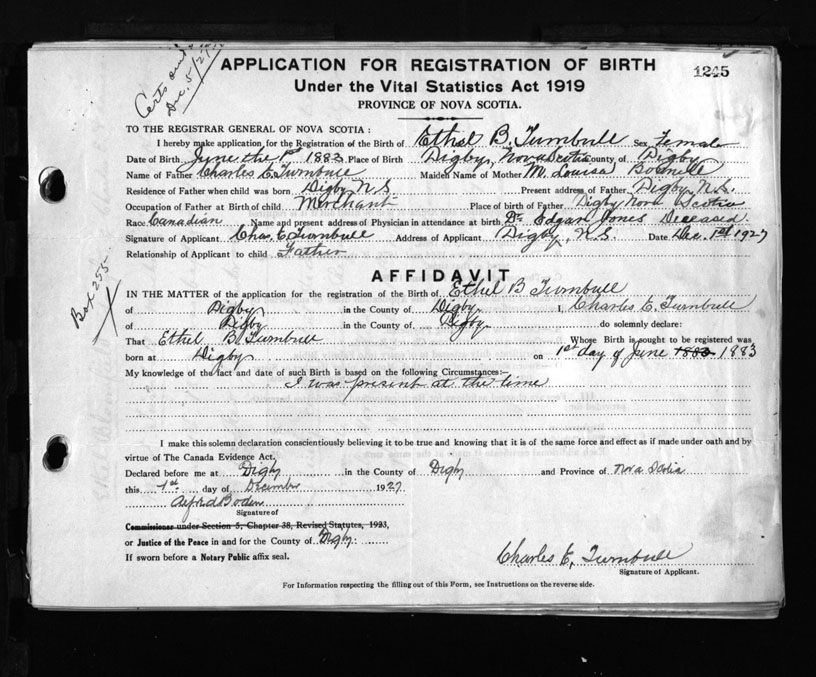 Certs and
Dec. 5/27
APPLICATION FOR REGISTRATION OF BIRTH
1245
Under the Vital Statistics Act 1919
PROVINCE OF NOVA SCOTIA.
TO THE REGISTRAR GENERAL OF NOVA SCOTIA:
I hereby make application, for the Registration of the Birth of Ethel B. Turnbull Sex Female
Date of Birth June the 1st 1883 Place of Birth Digby, Nova Scotia County of Digby
Name of Father Charles E. Turnbull Maiden Name of Mother M. Louisa
Residence of Father when child was born Digby N.S. Present address of Father Digby N.S.
Occupation of Father at Birth of child Merchant Place of birth of Father Digby Nova Scotia
Race Canadian Name and present address of Physician in attendance at birth Dr Edgar Jones Deceased
Signature of Applicant Chas. E. Turnbull Address of Applicant Digby, N.S. Date Dec. 1st 1927
Relationship of Applicant to child Father
Box 255
AFFIDAVIT
IN THE MATTER of the application for the registration of the Birth of Ethel B Turnbull
of Digby in the County of Digby I, Charles E. Turnbull
of Digby in the County of Digby do solemnly declare:
That Ethel B. Turnbull Whose Birth is sought to be registered was
born at Digby on 1st day of June 1883 1883
My knowledge of the fact and date of such Birth is based on the following Circumstances:-
I was present at the time
I make this solemn declaration conscientiously believing it to be true and knowing that it is of the same force and effect as if made under oath and by
virtue of The Canada Evidence Act.
Declared before me at Digby in the County of Digby and Province of Nova Scotia
this 1st day of December 1927
Alfred Boden
Signature of
Commissioner under Section 5, Chapter 38, Revised Statutes, 1923,
or Justice of the Peace in and for the County of Digby:
If sworn before a Notary Public affix seal.
Charles E. Turnbull
Signature of Applicant.
For Information respecting the filling out of this Form, see Instructions on the reverse side.